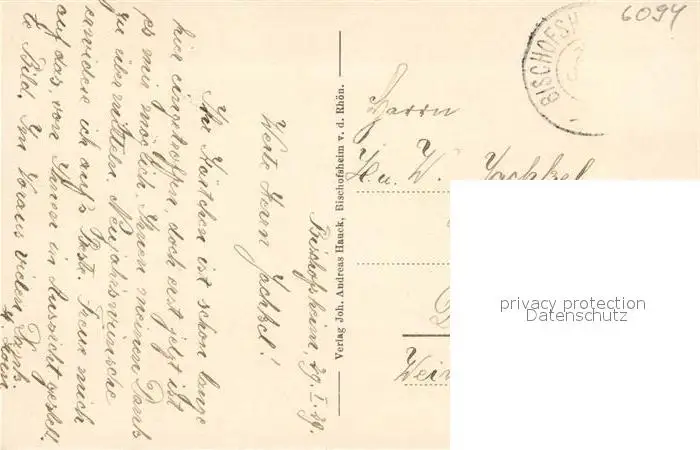 6094
BISCHOFSH
Herrn
H. u. W. Jachkel
Wei
privacy protection
Datenschutz
Verlag Joh. Andreas Hauck, Bischofsheim v. d. Rhön.
Bischofsheim, 29. I. 29.
Werte Herrn Jachkel!
Ihr Kärtchen ist schon lange
hier eingetroffen, doch erst jetzt ist
es mir möglich, Ihnen meinen Dank
zu übermitteln. Neujahrswünsche
erwidere ich auf's Beste. Freue mich
auf das, von Ihnen in Aussicht gestell-
te Bild. Im Voraus vielen Dank.